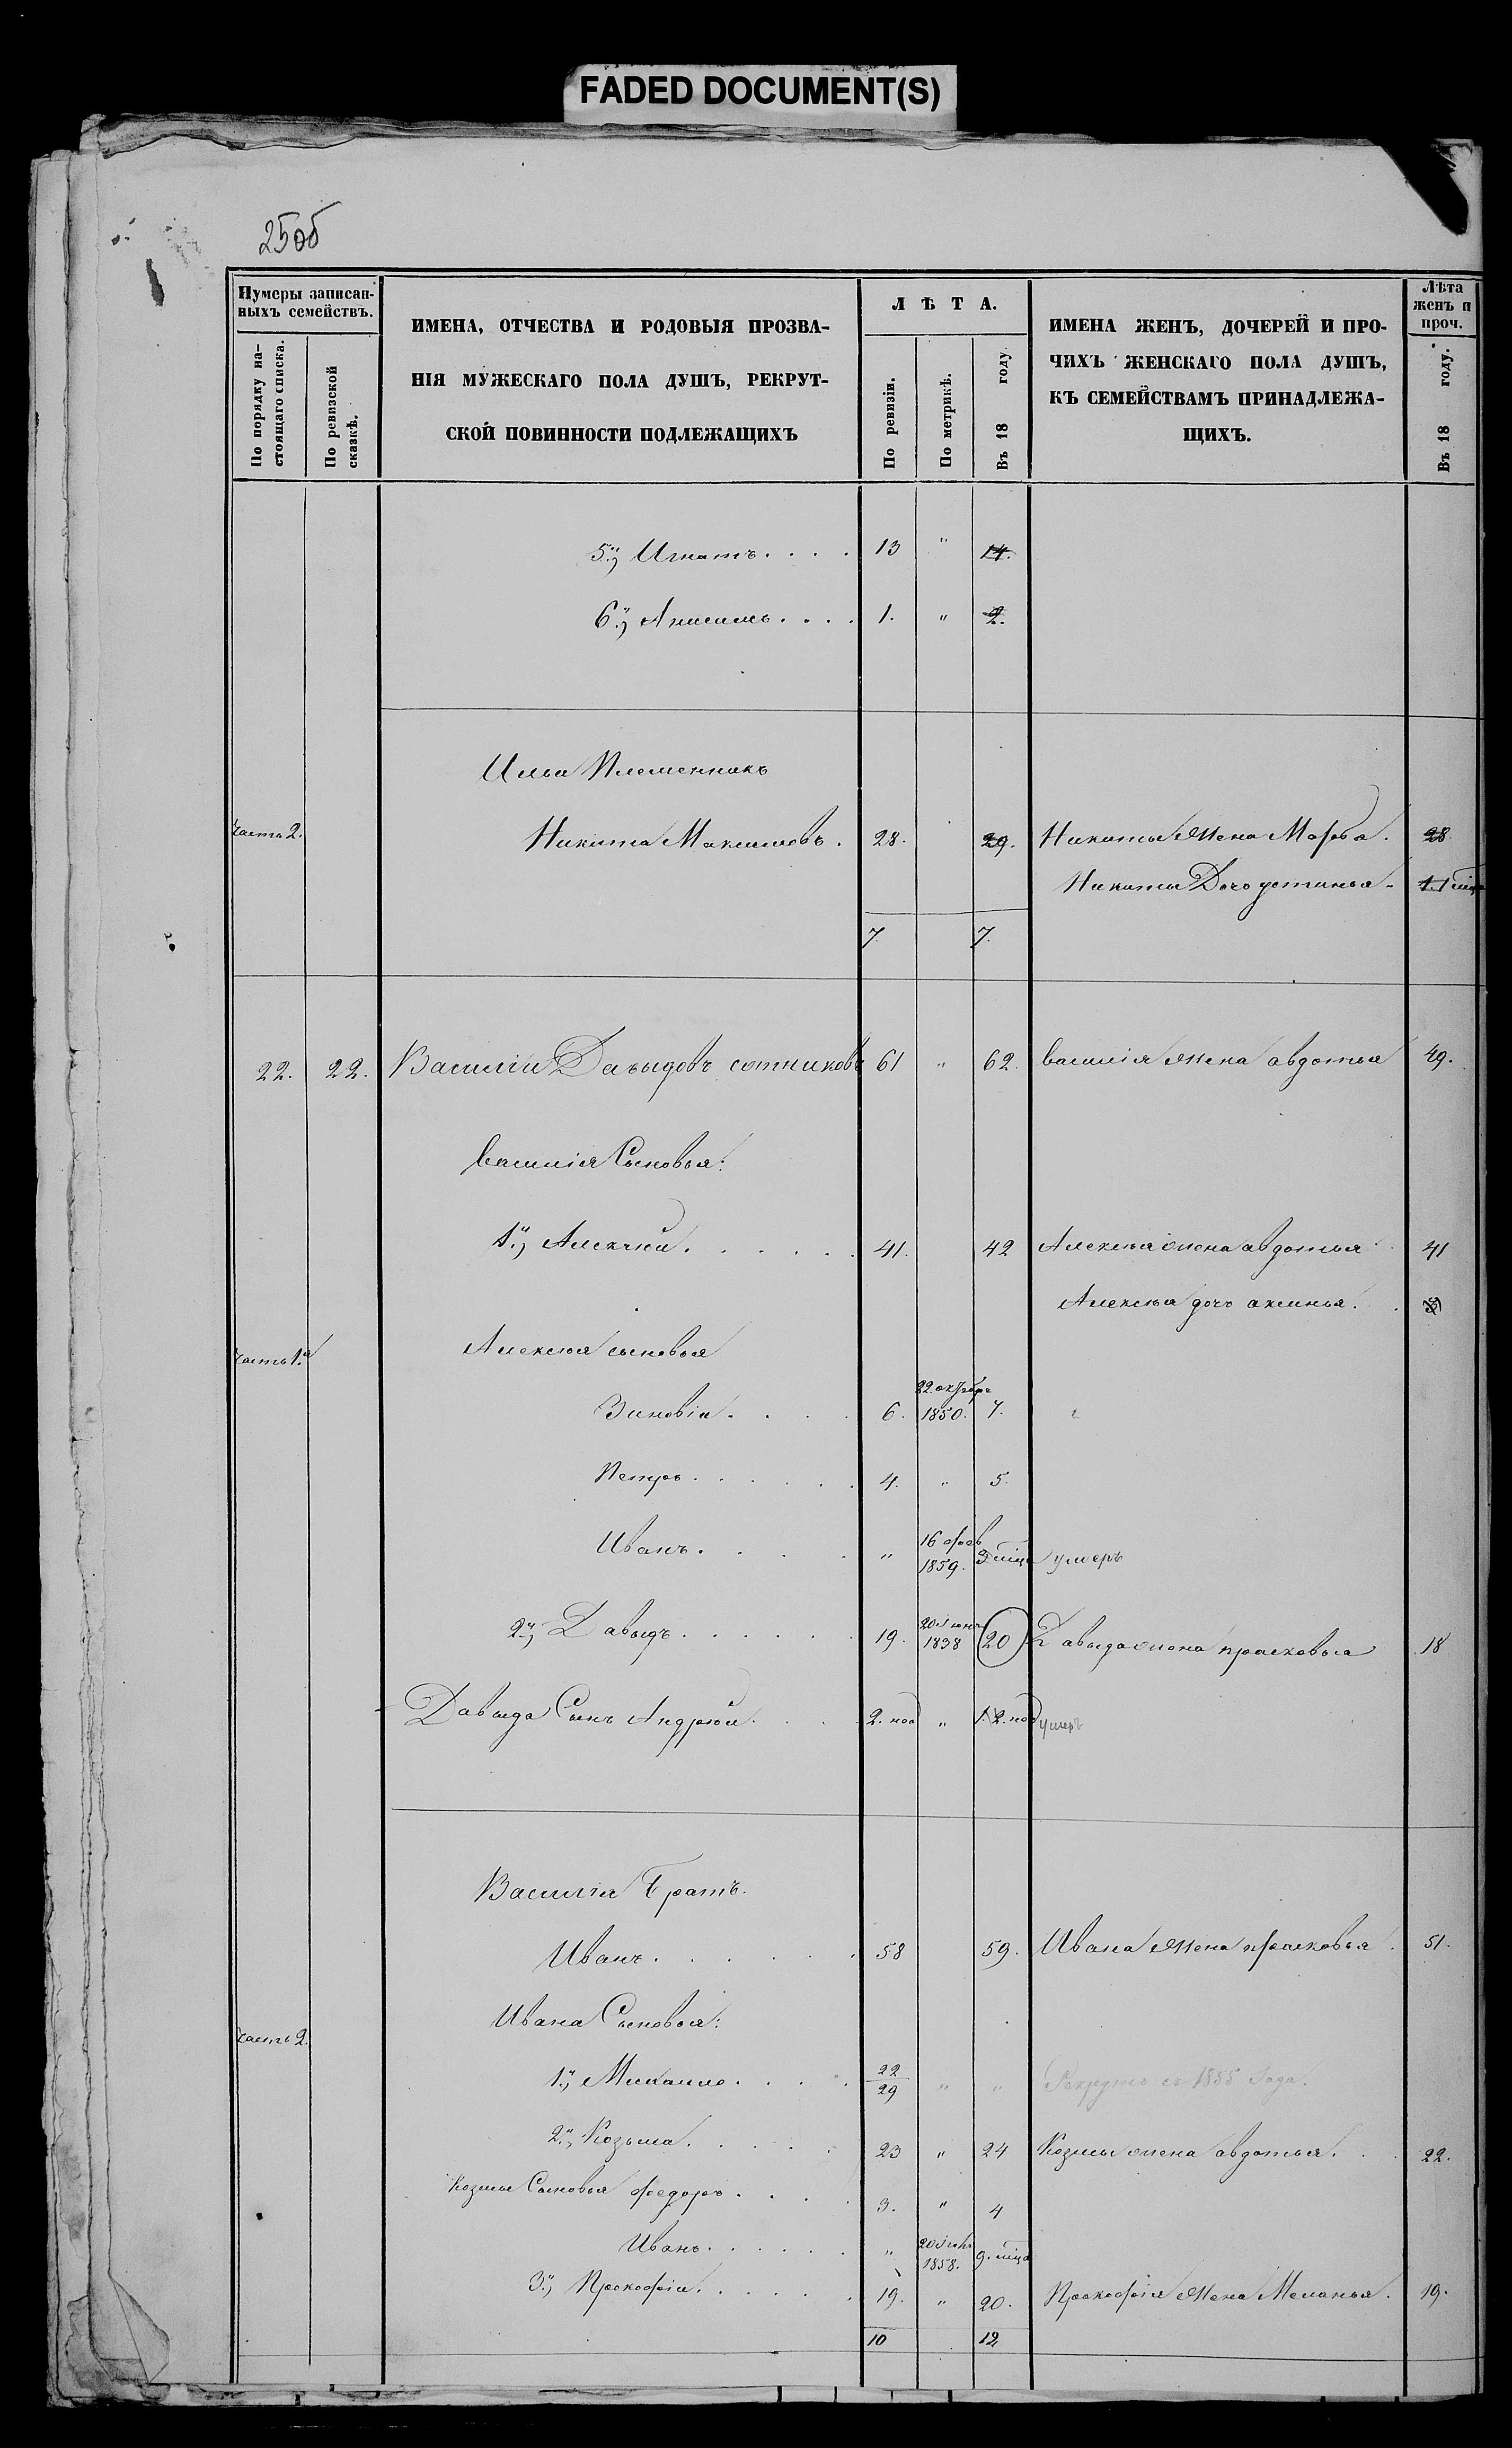 FADED DOCUMENT(S)
25об
Нумеры записан-
ныхъ семействъ.
По порядку на-
стоящаго списка.
По ревизской
сказкѣ.
ИМЕНА, ОТЧЕСТВА И РОДОВЫЯ ПРОЗВА-
НІЯ МУЖЕСКАГО ПОЛА ДУШЪ, РЕКРУТ-
СКОЙ ПОВИННОСТИ ПОДЛЕЖАЩИХЪ
ЛѢТА.
По ревизіи.
По метрикѣ.
Въ 18 году
ИМЕНА ЖЕНЪ, ДОЧЕРЕЙ И ПРО-
ЧИХЪ ЖЕНСКАГО ПОЛА ДУШЪ,
КЪ СЕМЕЙСТВАМЪ ПРИНАДЛЕЖА-
ЩИХЪ.
Лѣта
женъ и
проч.
Въ 18 году.
5й, Игнатъ. . . . 13 " 14.
6й, Анисимъ. . . . 1. " 2.
Ильи Племенникъ
часть 2. Никита Максимовъ. 28. 29. Никиты Жена Марфа. 28
Никиты Дочь устинья. 1 мца
7 7.
22. 22. Василіи Давыдовъ сотниковъ 61 " 62. василія Жена авдотья 49.
василія Сыновья:
1й, Алексѣй. . . . . . 41. 42 Алексѣя жена авдотья 41
Алексѣя дочь аксинья.
часть 1.я Алексѣя сыновья
22. октября
Зиновіи. . . . 6. 1850. 7.
Петръ. . . . . . 4. " 5.
16 февр
Иванъ. . . . " 1859. 3 мца умеръ
20 Июня
2й, Давыдъ. . . . . . 19. 1838 20 Давыда жена прасковья 18
Давыда Сынъ Андрей. . . 2. нед " 1. 2. нед умеръ
Василія Братъ.
Иванъ. . . . . . 58 59. Ивана Жена прасковья. 51.
часть 2. Ивана Сыновья:
1й, Михаило. . . . 22
29 " " Рекрутъ съ 1855 Года.
2й, Козьма. . . . . 23 " 24 Козьмы жена авдотья. . . 22.
Козмы Сыновья федоръ. . . . 3. " 4
Иванъ. . . . . . " 1858. 9. мца
3й, Прокофіи. . . . . . 19. " 20. Прокофія Жена Меланья. 19.
10 12